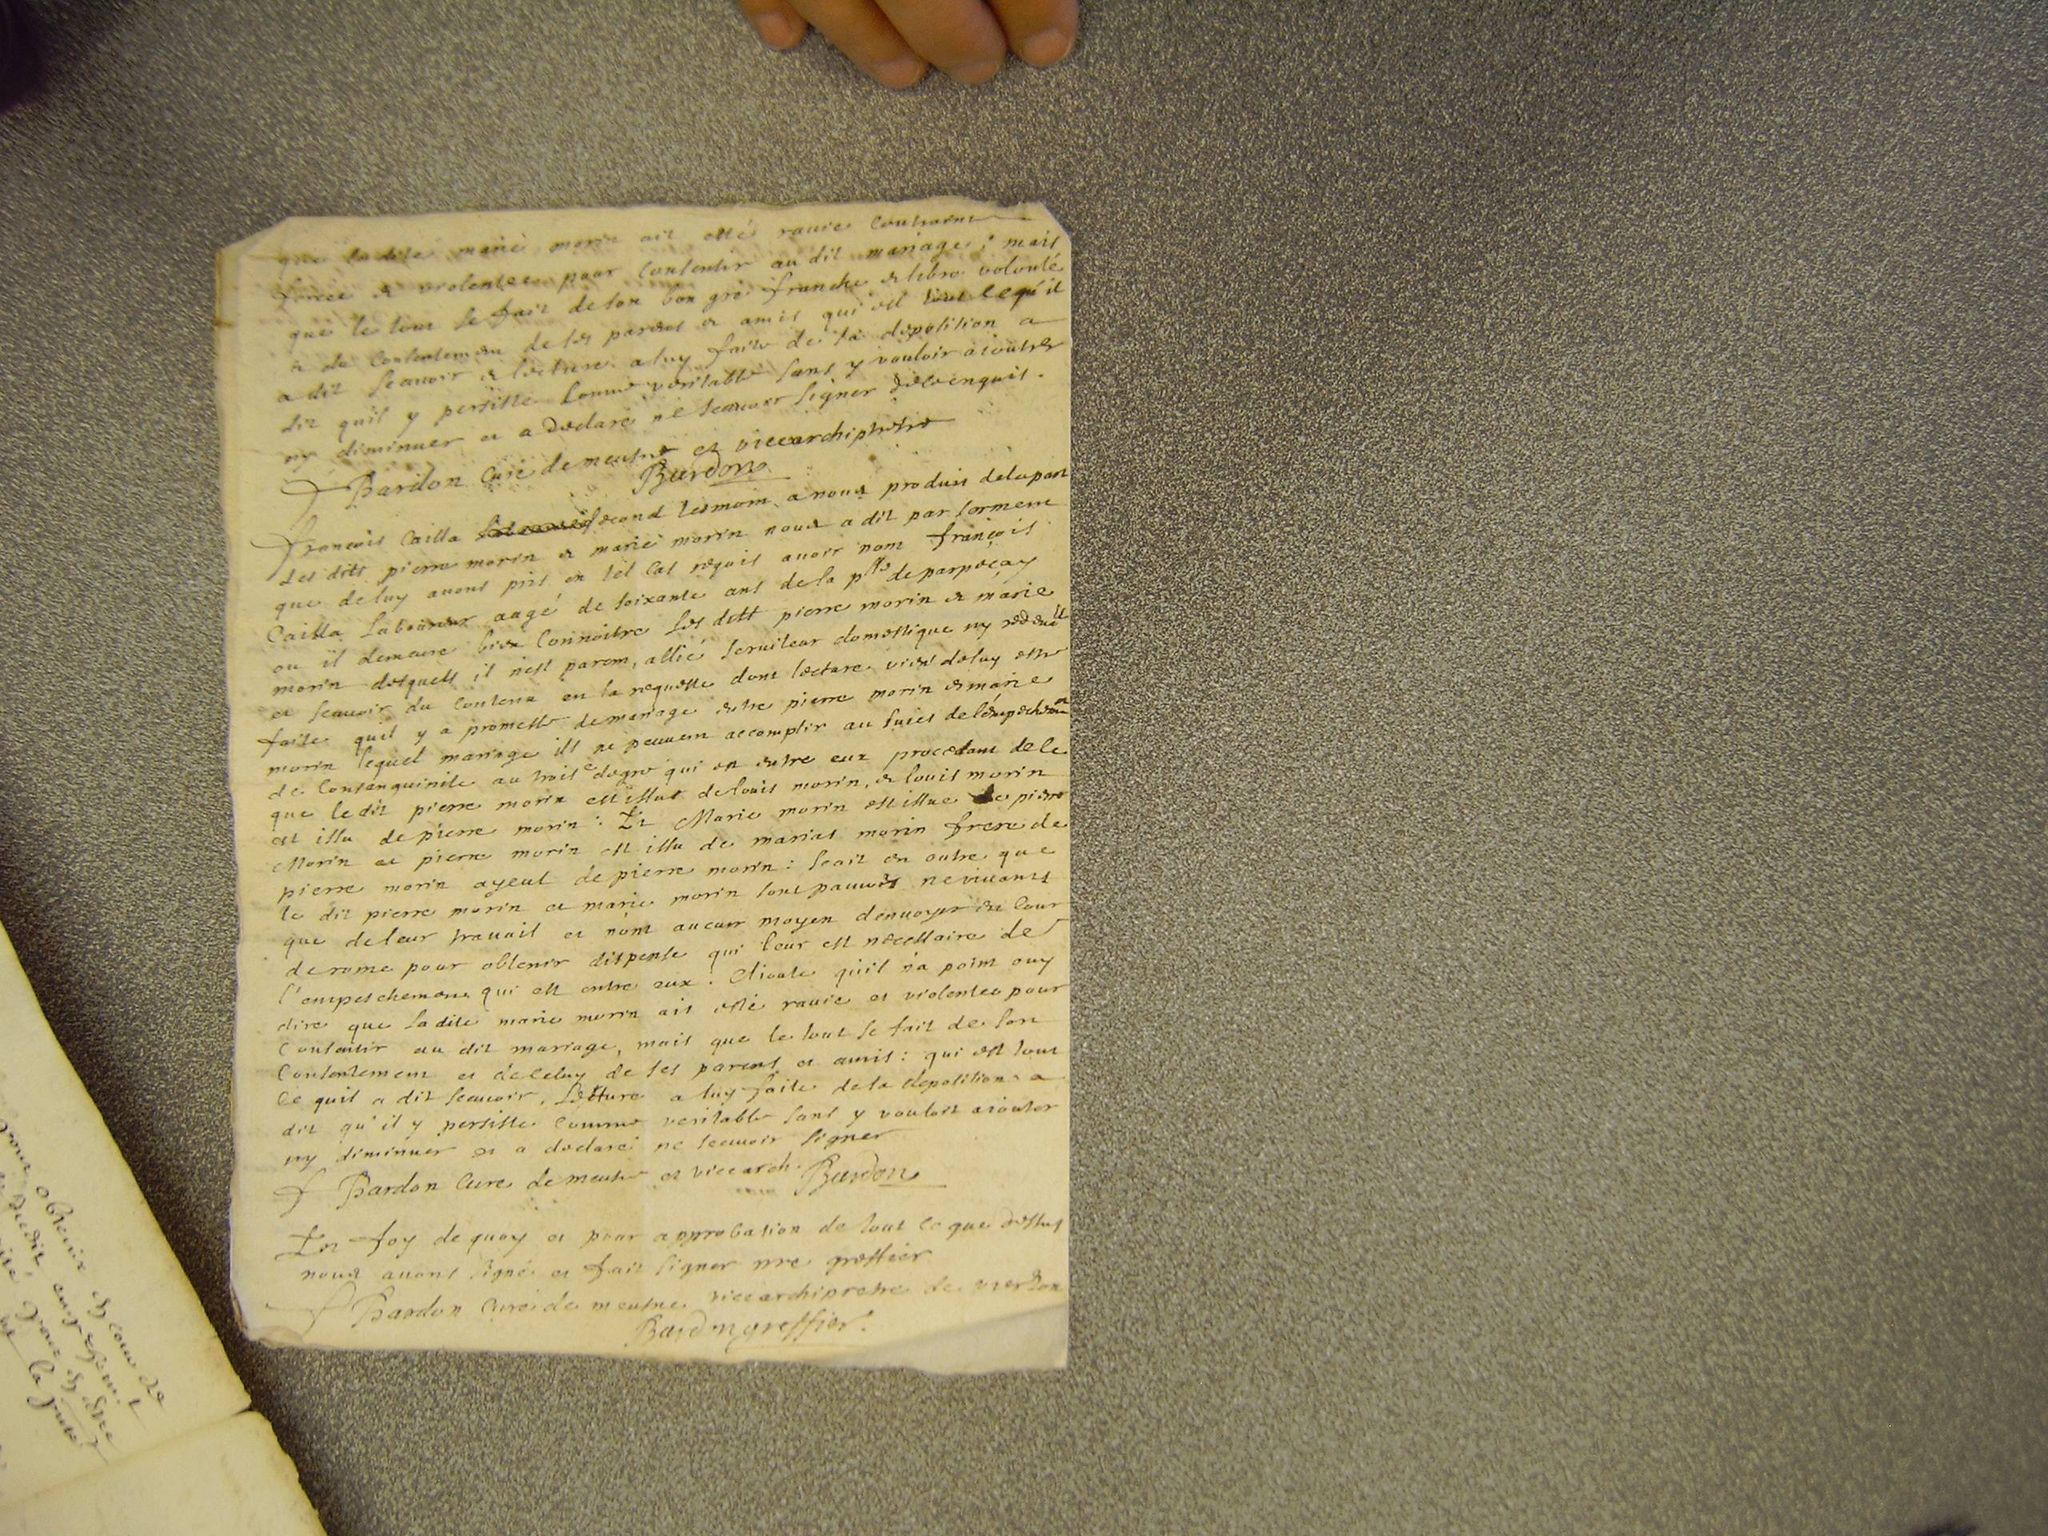 que la dite marie morin ait esté ravie contrainte
forcee et violentee pour consentir au dit mariage; mais
que le tout se fait de son bon gré franche et libre volonté
et du consentement de ses parens et amis qui est tout ce qu'il
a dit scavoir et lecture a luy faite de sa deposition a
dit quil y persiste comme veritable sans y vouloir aiouter
ny diminuer et a declaré ne scavoir signer de ce enquis.
Bardon curé de meusne et vicearchiprestre
Bardon
françois Cailla second tesmoin a nous produit de la part
des dits pierre morin et marie morin nous a dit par serment
que de luy avons pris en tel cas requis avoir nom françois
Cailla laboureur aagé de soixante ans de la psse de parpeçay
ou il demeure bien connoistre les dits pierre morin et marie
morin desquels il n'est parent, allié serviteur domestique ny redevable
et scavoir du contenu en la requeste dont lecture vient de luy estre
faite quil y a promesse de mariage entre pierre morin et marie
morin lequel mariage ils ne peuvent accomplir au suiet de l'empechement
de consanguinite au troise degre qui est entre eux procedant de ce
que le dit pierre morin est issu de louis morin, et louis morin
est issu de pierre morin: Et Marie morin est issue de pierre
Morin et pierre morin est issu de marias morin frere de
pierre morin ayeul de pierre morin: scait en outre que
le dit pierre morin et marie morin sont pauvres ne vivants
que de leur travail et n'ont aucun moyen d'envoyer en cour
de rome pour obtenir dispense qui leur est necessaire de
l'empeschement qui est entre eux. Aioute qu'il n'a point ouy
dire que la dite marie morin ait esté ravie et violentee pour
consentir au dit mariage, mais que le tout se fait de son
consentement et de celuy de ses parens et amis: qui est tout
ce quil a dit scavoir, lecture a luy faite de sa deposition a
dit qu'il y persiste comme veritable sans y vouloir aiouter
ny diminuer et a declaré ne scavoir signer
Bardon curé de meusne et vicearch. Bardon
En foy de quoy et pour approbation de tout ce que dessus
nous avons signé et fait signer nre greffier
Bardon curé de meusne vicearchiprestre de vierzon
Bardon greffier.
pour obtenir en cour de
la juste